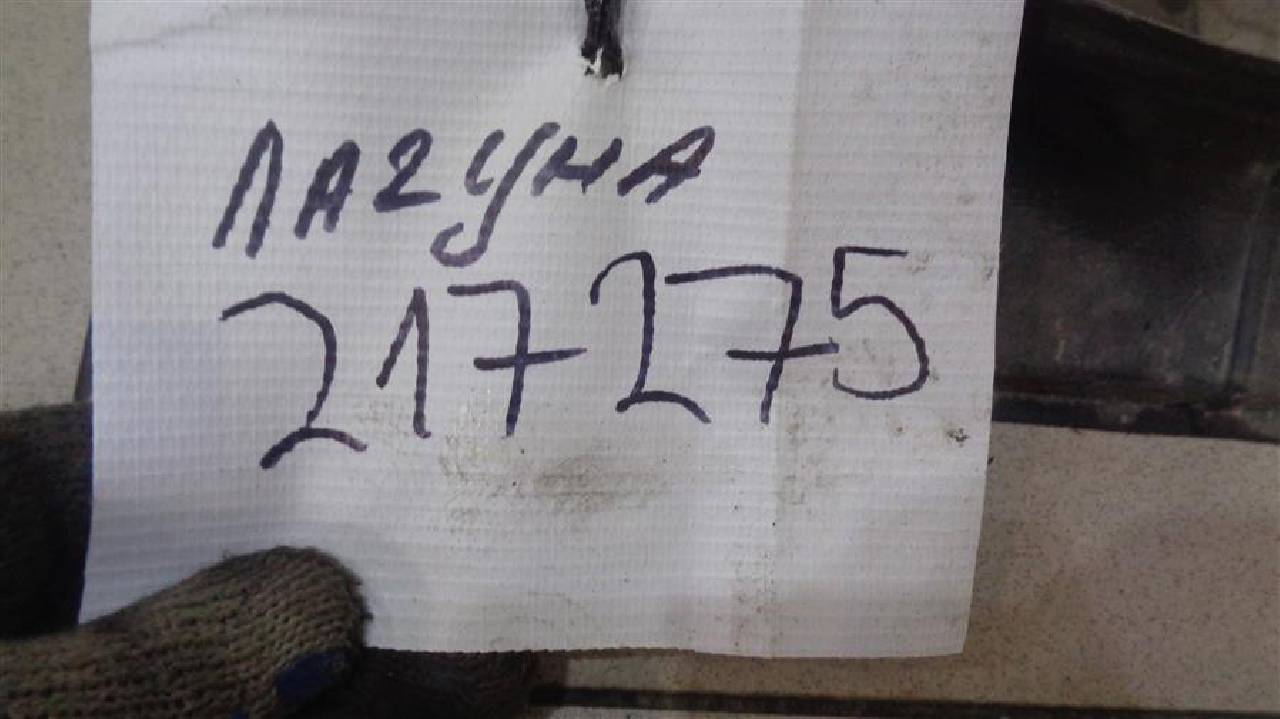 Лагуна
217275